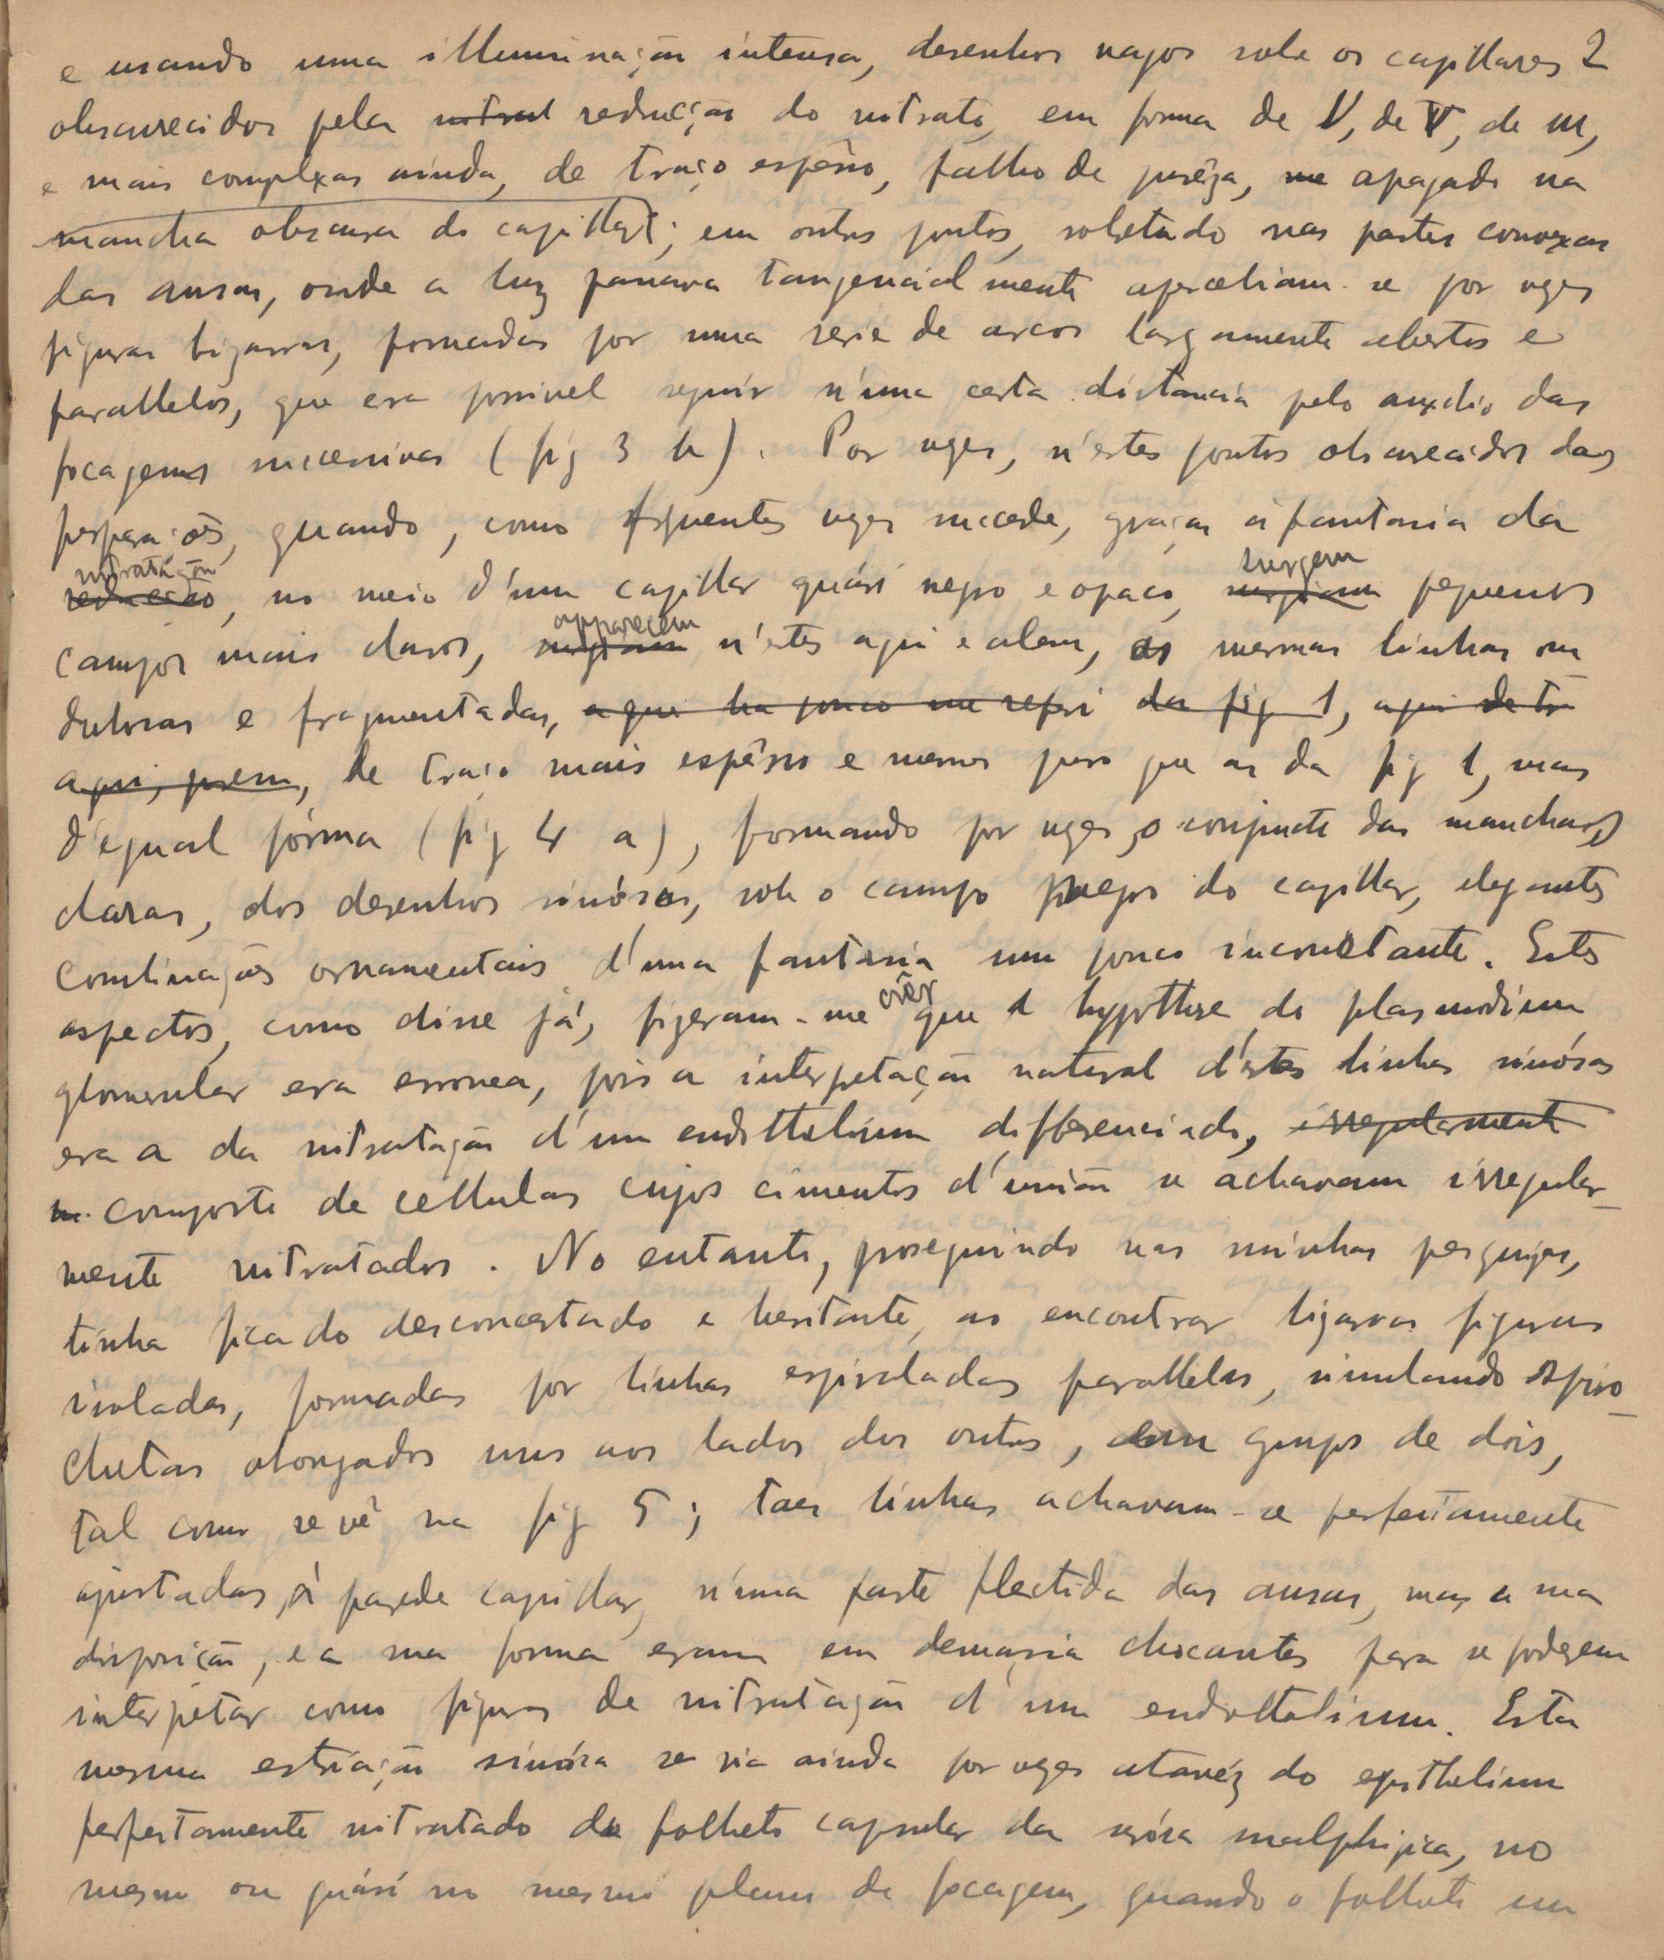 e usando uma illuminação intensa, desenhos vagos sobre os capillares 2
obscurecidos pela nitrat redução do nitrato, em forma de V, de V, de m,
e mais complexas ainda, de traço espêsso, falho de purêza, me apagado na
mancha obscura do capillar; em outros pontos, sobretudo nas partes convexas
das ansas, onde a luz passava tangencialmente apercebiam-se por vezes
figuras bizarras, formadas por uma serie de arcos largamente abertos e
parallelos, que era possivel seguir n'uma certa distancia pelo auxilio das
focagens successivas (fig 3 b). Por vezes, n'estes pontos obscurecidos das
perparações, quando, como frquentes vezes succede, graças á fantasia da
nitratação
reducção, no meio d'um capillar quási negro e opaco, surgem surgiam pequenos
campos mais claros, apparecem surgiam n'estes aqui e alem, as mesmas linhas on
dulosas e fragmentadas, a que ha pouco me referi da fig 1, aqui de tr
aqui, porem, de traço mais espêsso e menos puro que as da fig 1, mas
d'egual fórma (fig 4 a), formando por vezes, o conjuncto das manchas
claras, dos desenhos sinósos, sob o campo negro do capillar, elegantes
combinações ornamentais d'uma fantasia um pouco inconstante. Estes
aspectos, como disse já, fizeram-me crêr que a hypothese do plasmodium
glomerular era erronea, pois a interpetação natural d'estas linhas sinósas
era a da nitratação d'um endothelium differenciado, irregularmente
composto de cellulas cujos cimentos d'união se achavam irregular-
mente nitratados. No entanto, proseguindo nas minhas pesquizas,
tinha ficado desconcertado e hesitante, ao encontrar bizarras figuras
isoladas, formadas por linhas espiroladas parallelas, simulando spiro-
chetas alongados uns aos lados dos outros, em grupos de dois,
tal como se vê na fig 5; taes linhas achavam-se perfeitamente
ajustadas, á parede capillar, n'uma parte flectida das ansas, mas a sua
disposição, e a sua forma eram em demasia chocantes para se poderem
interpetar como figuras de nitratação d'um endothelium. Esta
mesma estriação sinósa se via ainda por vezes atravéz do epithelium
perfeitamente nitratado do folheto capsular da serósa malphigica, no
mesmo ou quási no mesmo plano de focagem, quando o folheto em